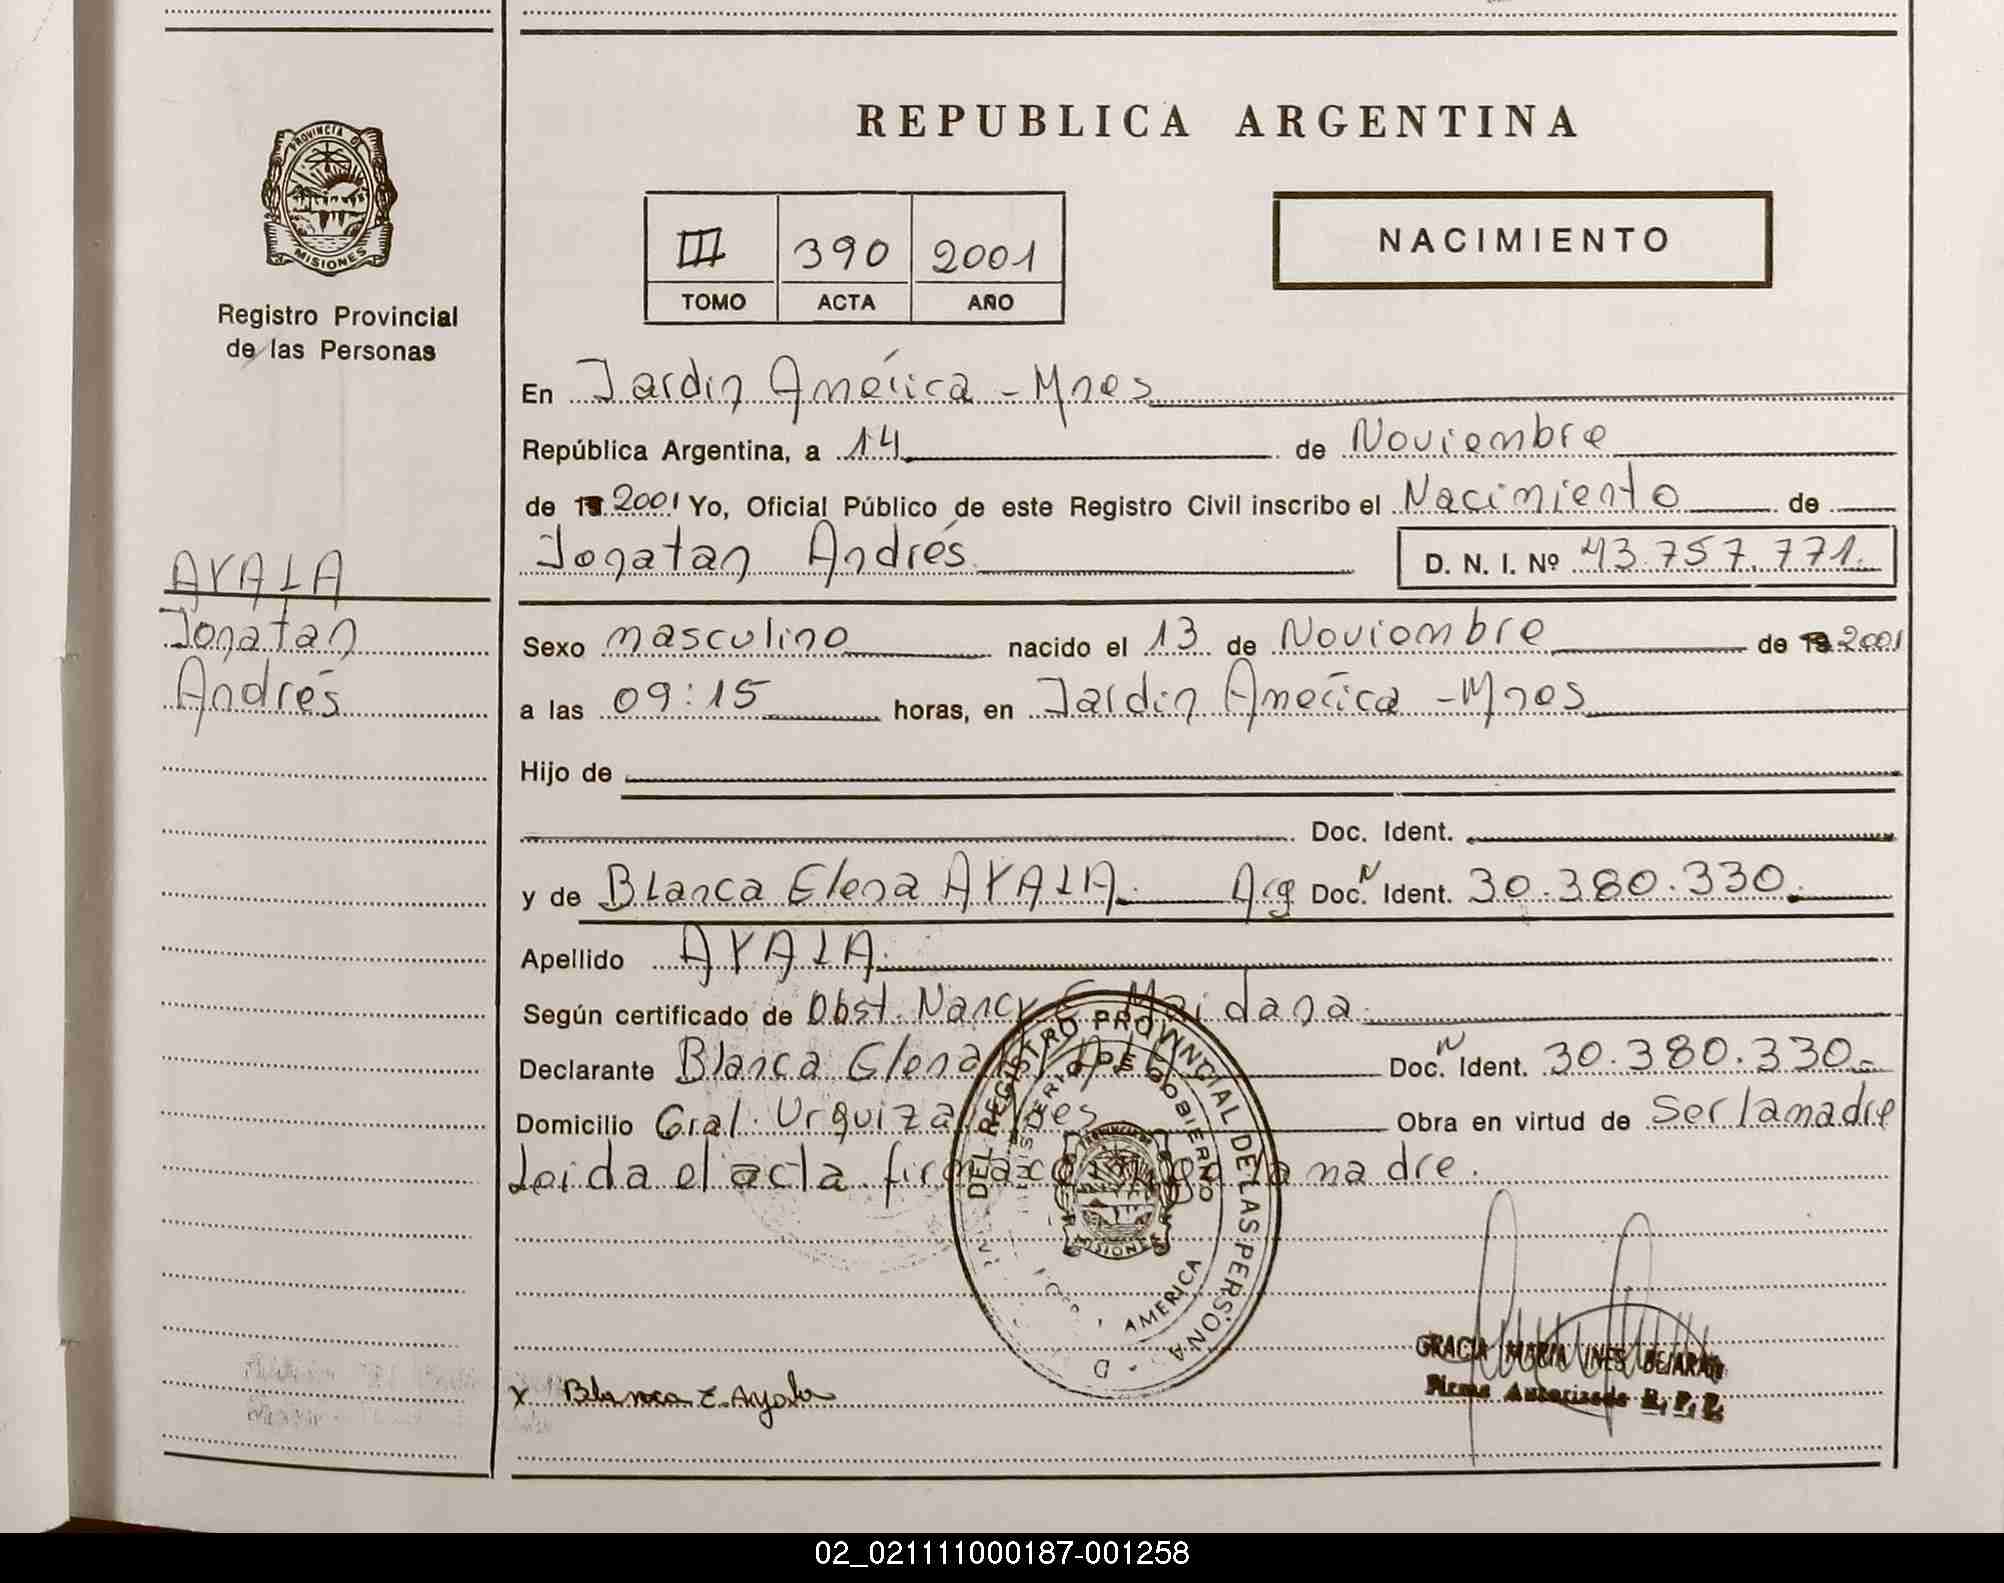 PROVINCIA DE
MISIONES
Registro Provincial
de las Personas
AYALA
Jonatan
Andrés
REPUBLICA ARGENTINA
III 390 2001
TOMO ACTA AÑO
NACIMIENTO
En Jardin América - Mnes
República Argentina, a 14 de Noviembre
de 19 2001 Yo, Oficial Público de este Registro Civil inscribo el Nacimiento de
Jonatan Andrés D. N. I. Nº 43.757.771.
Sexo masculino nacido el 13 de Noviembre de 19 2001
a las 09:15 horas, en Jardin América - Mnes
Hijo de
Doc. Ident.
y de Blanca Elena AYALA. Arg Doc. N Ident. 30.380.330.
Apellido AYALA.
Según certificado de Obst. Nancy E. Maidana.
Declarante Blanca Elena AYALA Doc. N Ident. 30.380.330.-
Domicilio Gral. Urquiza Mnes Obra en virtud de Ser la madre
Leida el acta firma la madre.
DEL REGISTRO PROVINCIAL DE LAS PERSONAS
MINISTERIO DE GOBIERNO
MISIONES
AMERICA
x Blanca E. Ayala
GRACIA MARIA INES BEJARAN
Firma Autorizada R. P. P.
02_021111000187-001258